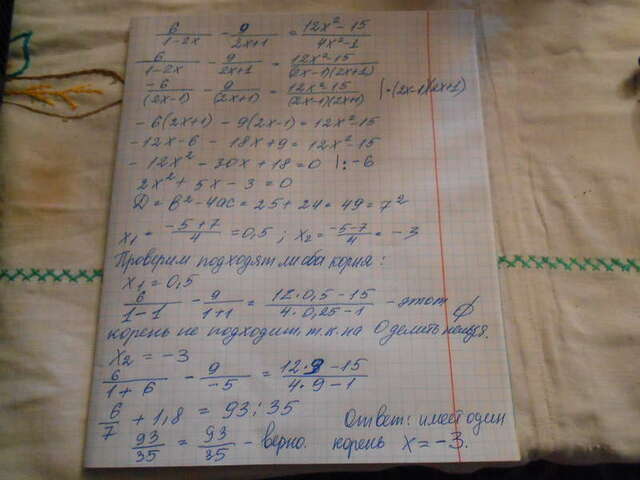 6/(1-2x) - 9/(2x+1) = (12x²-15)/(4x²-1)
6/(1-2x) - 9/(2x+1) = (12x²-15)/((2x-1)(2x+1))
-6/(2x-1) - 9/(2x+1) = (12x²-15)/((2x-1)(2x+1)) |·(2x-1)(2x+1)
-6(2x+1) - 9(2x-1) = 12x²-15
-12x-6 - 18x+9 = 12x²-15
-12x² - 30x + 18 = 0 |:-6
2x² + 5x - 3 = 0
D = b²-4ac = 25+24 = 49 = 7²
x₁ = (-5+7)/4 = 0,5; x₂ = (-5-7)/4 = -3
Проверим подходят ли оба корня:
x₁ = 0,5
6/(1-1) - 9/(1+1) = (12·0,5-15)/(4·0,25-1) - этот ∅
корень не подходит, т.к. на 0 делить нельзя.
x₂ = -3
6/(1+6) - 9/-5 = (12·9-15)/(4·9-1)
6/7 + 1,8 = 93:35
93/35 = 93/35 - верно.
Ответ: имеет один
корень x = -3.